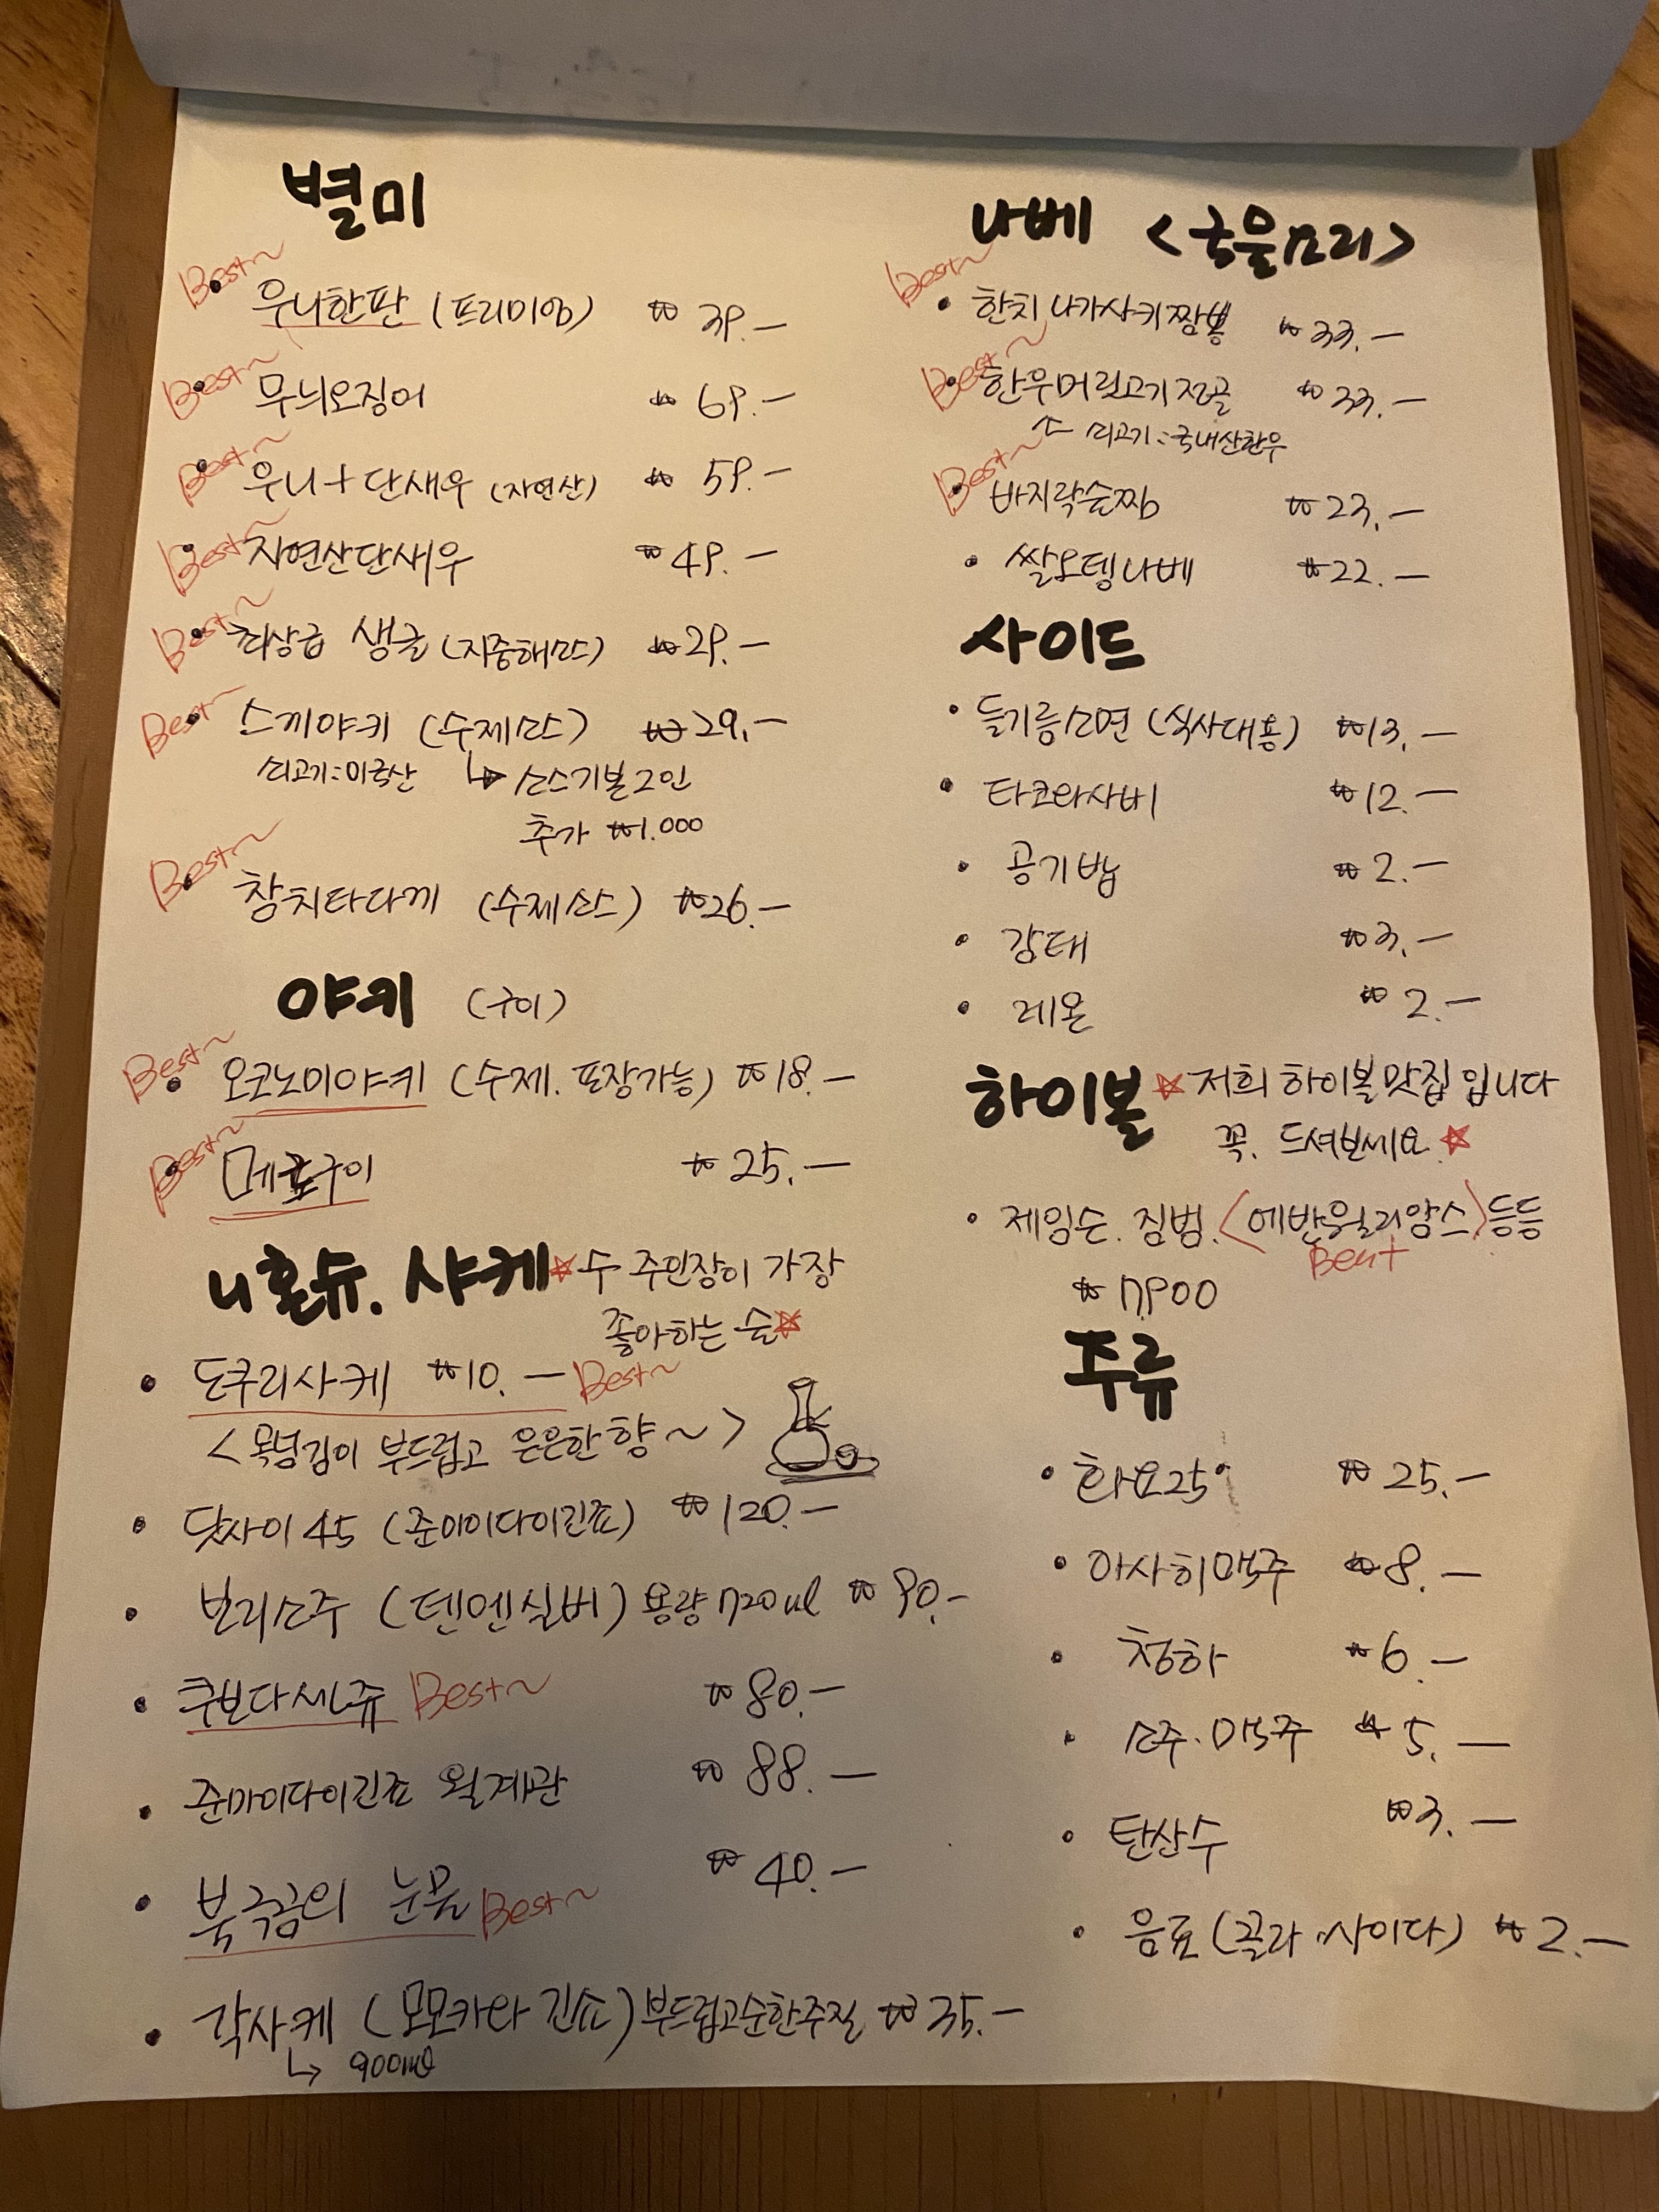 별미
Best~
• 우니한판 (프리미엄) ₩ 39.—
Best~
• 무늬오징어 ₩ 69.—
Best~
• 우니+단새우 (자연산) ₩ 59.—
Best~
• 자연산단새우 ₩ 49.—
Best~
• 최상급 생굴 (지중해소스) ₩29.—
Best~
• 스끼야키 (수제소스) ₩29.—
쇠고기:미국산 ↳ 소스기본2인
추가 ₩1.000
Best~
• 참치타다끼 (수제소스) ₩26.—
야키 (구이)
Best~
• 오코노미야키 (수제. 포장가능) ₩18.—
Best~
• 메로구이 ₩25.—
니혼슈. 사케 ☆ 두 주인장이 가장
좋아하는 술☆
• 도쿠리사케 ₩10.— Best~
<목넘김이 부드럽고 은은한 향~>
• 닷사이 45 (준마이다이긴죠) ₩120.—
• 보리소주 (텐멘실버) 용량720ml ₩ 90.-
• 쿠보다센쥬 Best~ ₩80.—
• 준마이다이긴죠 월계관 ₩ 88.—
• 북극곰의 눈물 Best~ ₩ 40.—
• 각사케 (모모카와 긴쇼) 부드럽고순한주질 ₩35.—
↳ 900ml
나베 <국물요리>
Best~
• 한치나가사키짬뽕 ₩33.—
Best~
• 한우머릿고기전골 ₩33.—
쇠고기:국내산한우
Best~
• 바지락술찜 ₩23.—
• 쌀오뎅나베 ₩22.—
사이드
• 들기름소면 (식사대용) ₩13.—
• 타코와사비 ₩12.—
• 공기밥 ₩2.—
• 감태 ₩3.—
• 레몬 ₩2.—
하이볼 ☆ 저희 하이볼맛집 입니다
꼭. 드셔보세요.☆
• 제임슨. 짐빔. <에반윌리암스> 등등
Best
₩ 7.900
주류
• 화요25° ₩25.—
• 아사히맥주 ₩8.—
• 청하 ₩6.—
• 소주.맥주 ₩5.—
• 탄산수 ₩3.—
• 음료 (콜라,사이다) ₩2.—